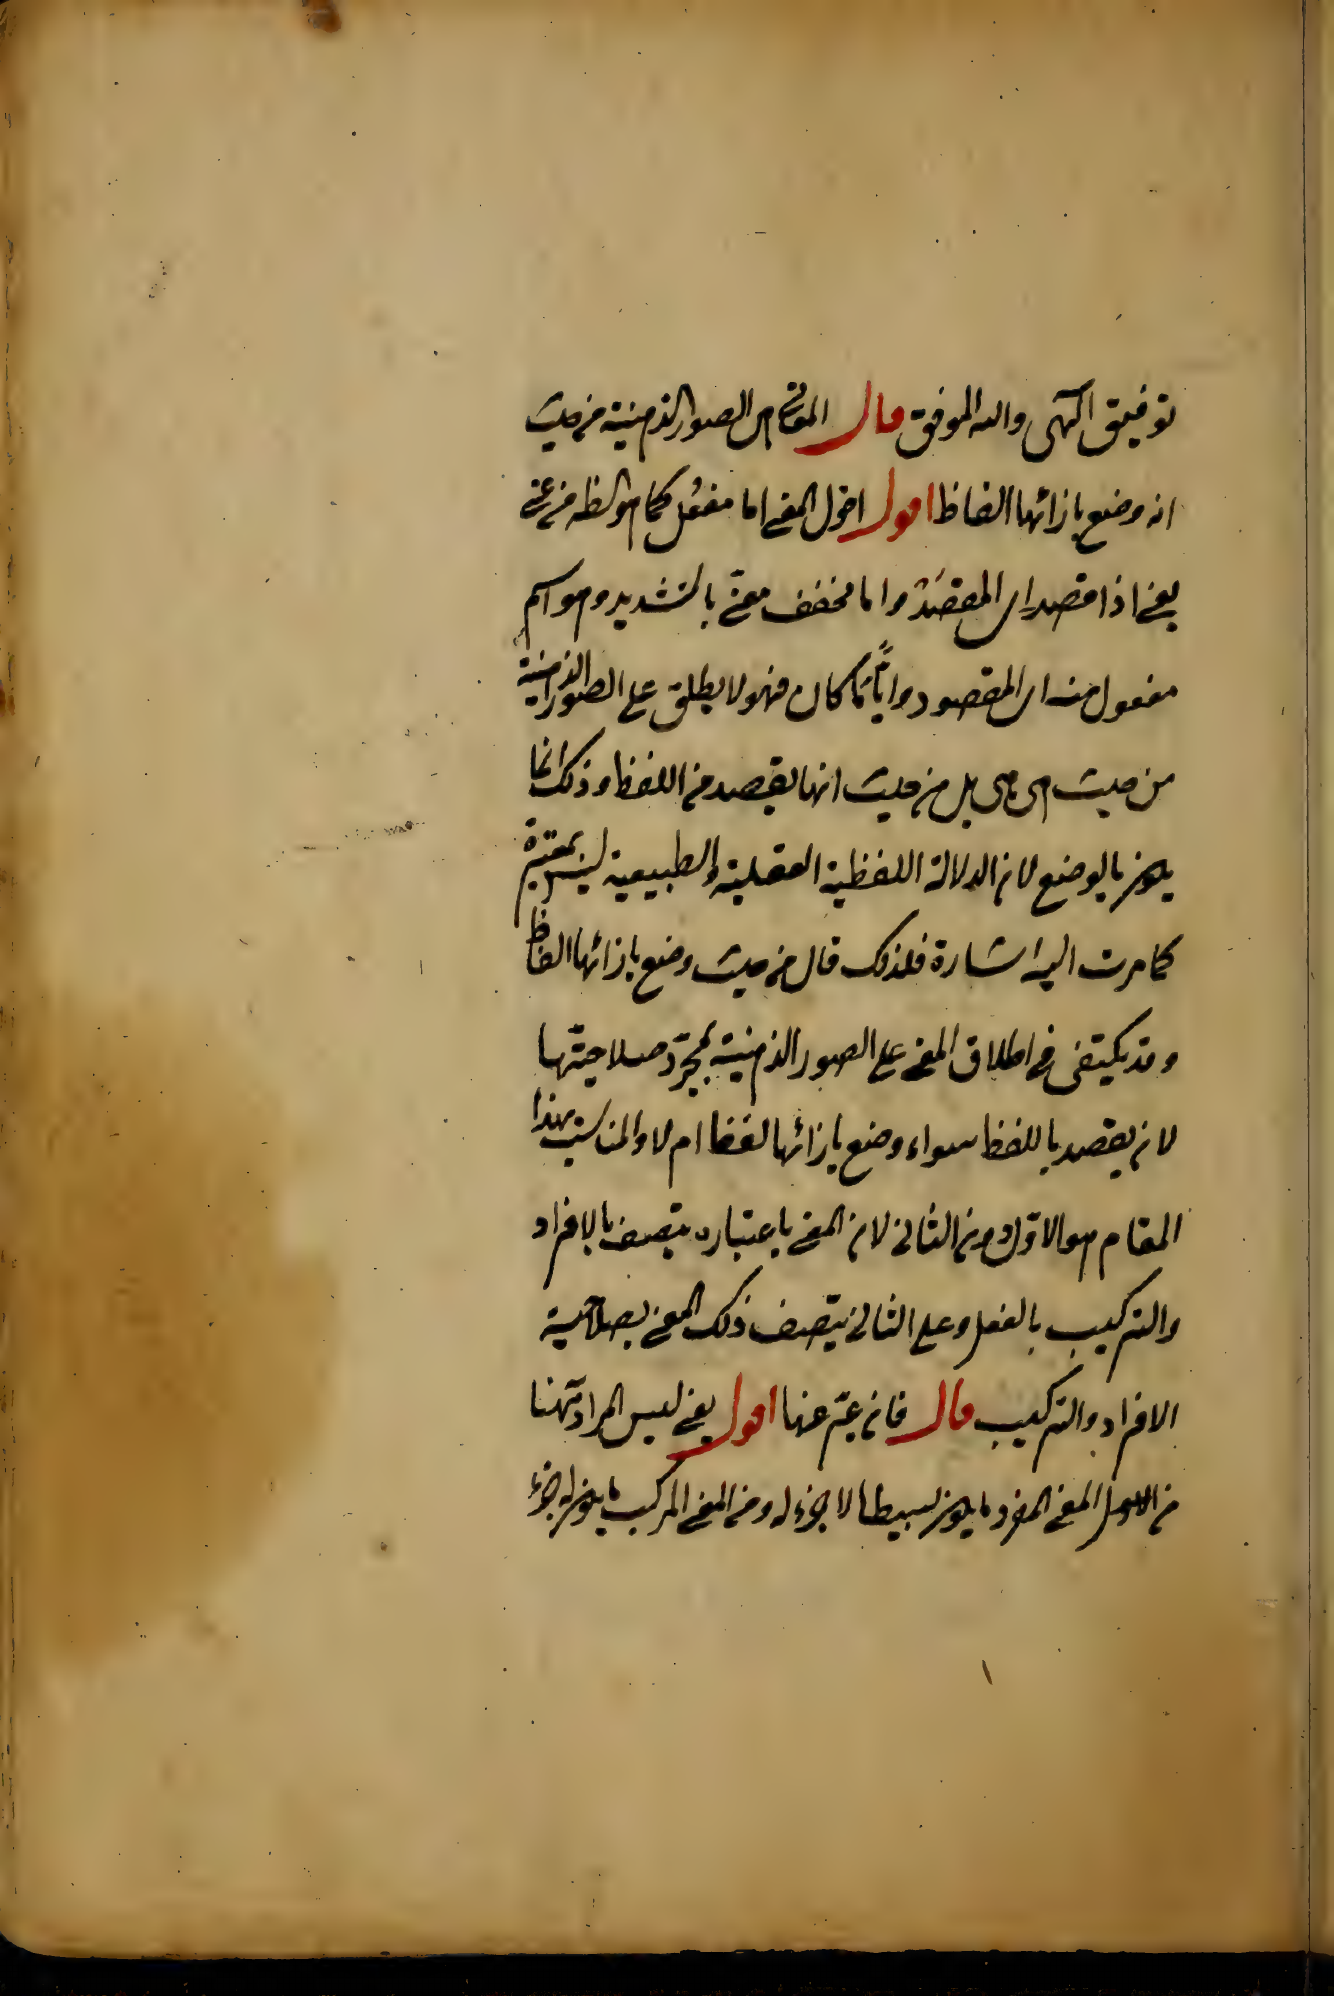 توفيق الٓهى والله الموفق قال المعانى هى الصور الذهنية من حيث
انه وضع بازائها الفاظ اقول اقول المعنى اما مفعل كما هو الظ من عنى
يعنى اذا قصد اى المقصد واما مخفف معنىّ بالتشديد وهو اسم
مفعول منه اى المقصود وايّاً مّا كان فهو لا يطلق على الصور الذهنية
من حيث هى هى بل من حيث انها تقصد من اللفظ وذلك انما
يكون بالوضع لان الدلالة اللفظية العقلية والطبيعية ليس بمعتبرة
كما مرت اليه اشارة فلذلك قال من حيث وضع بازائها الفاظ
وقد يكتفى فى اطلاق المعنى على الصور الذهنية بمجرّد صلاحيتها
لان يقصد باللفظ سواء وضع بازائها لفظ ام لا والمناسب بهذا
المقام هو الاوّل دون الثانى لان المعنى باعتباره يتصف بالافراد
والتركيب بالفعل وعلى الثانى يتصف ذلك المعنى بصلاحية
الافراد والتركيب قال فان عبّر عنها اقول يعنى ليس المراد ههنا
من المعنى المفرد ما يكون بسيطا لا جزء له ومن المعنى المركب ما يكون له جزء